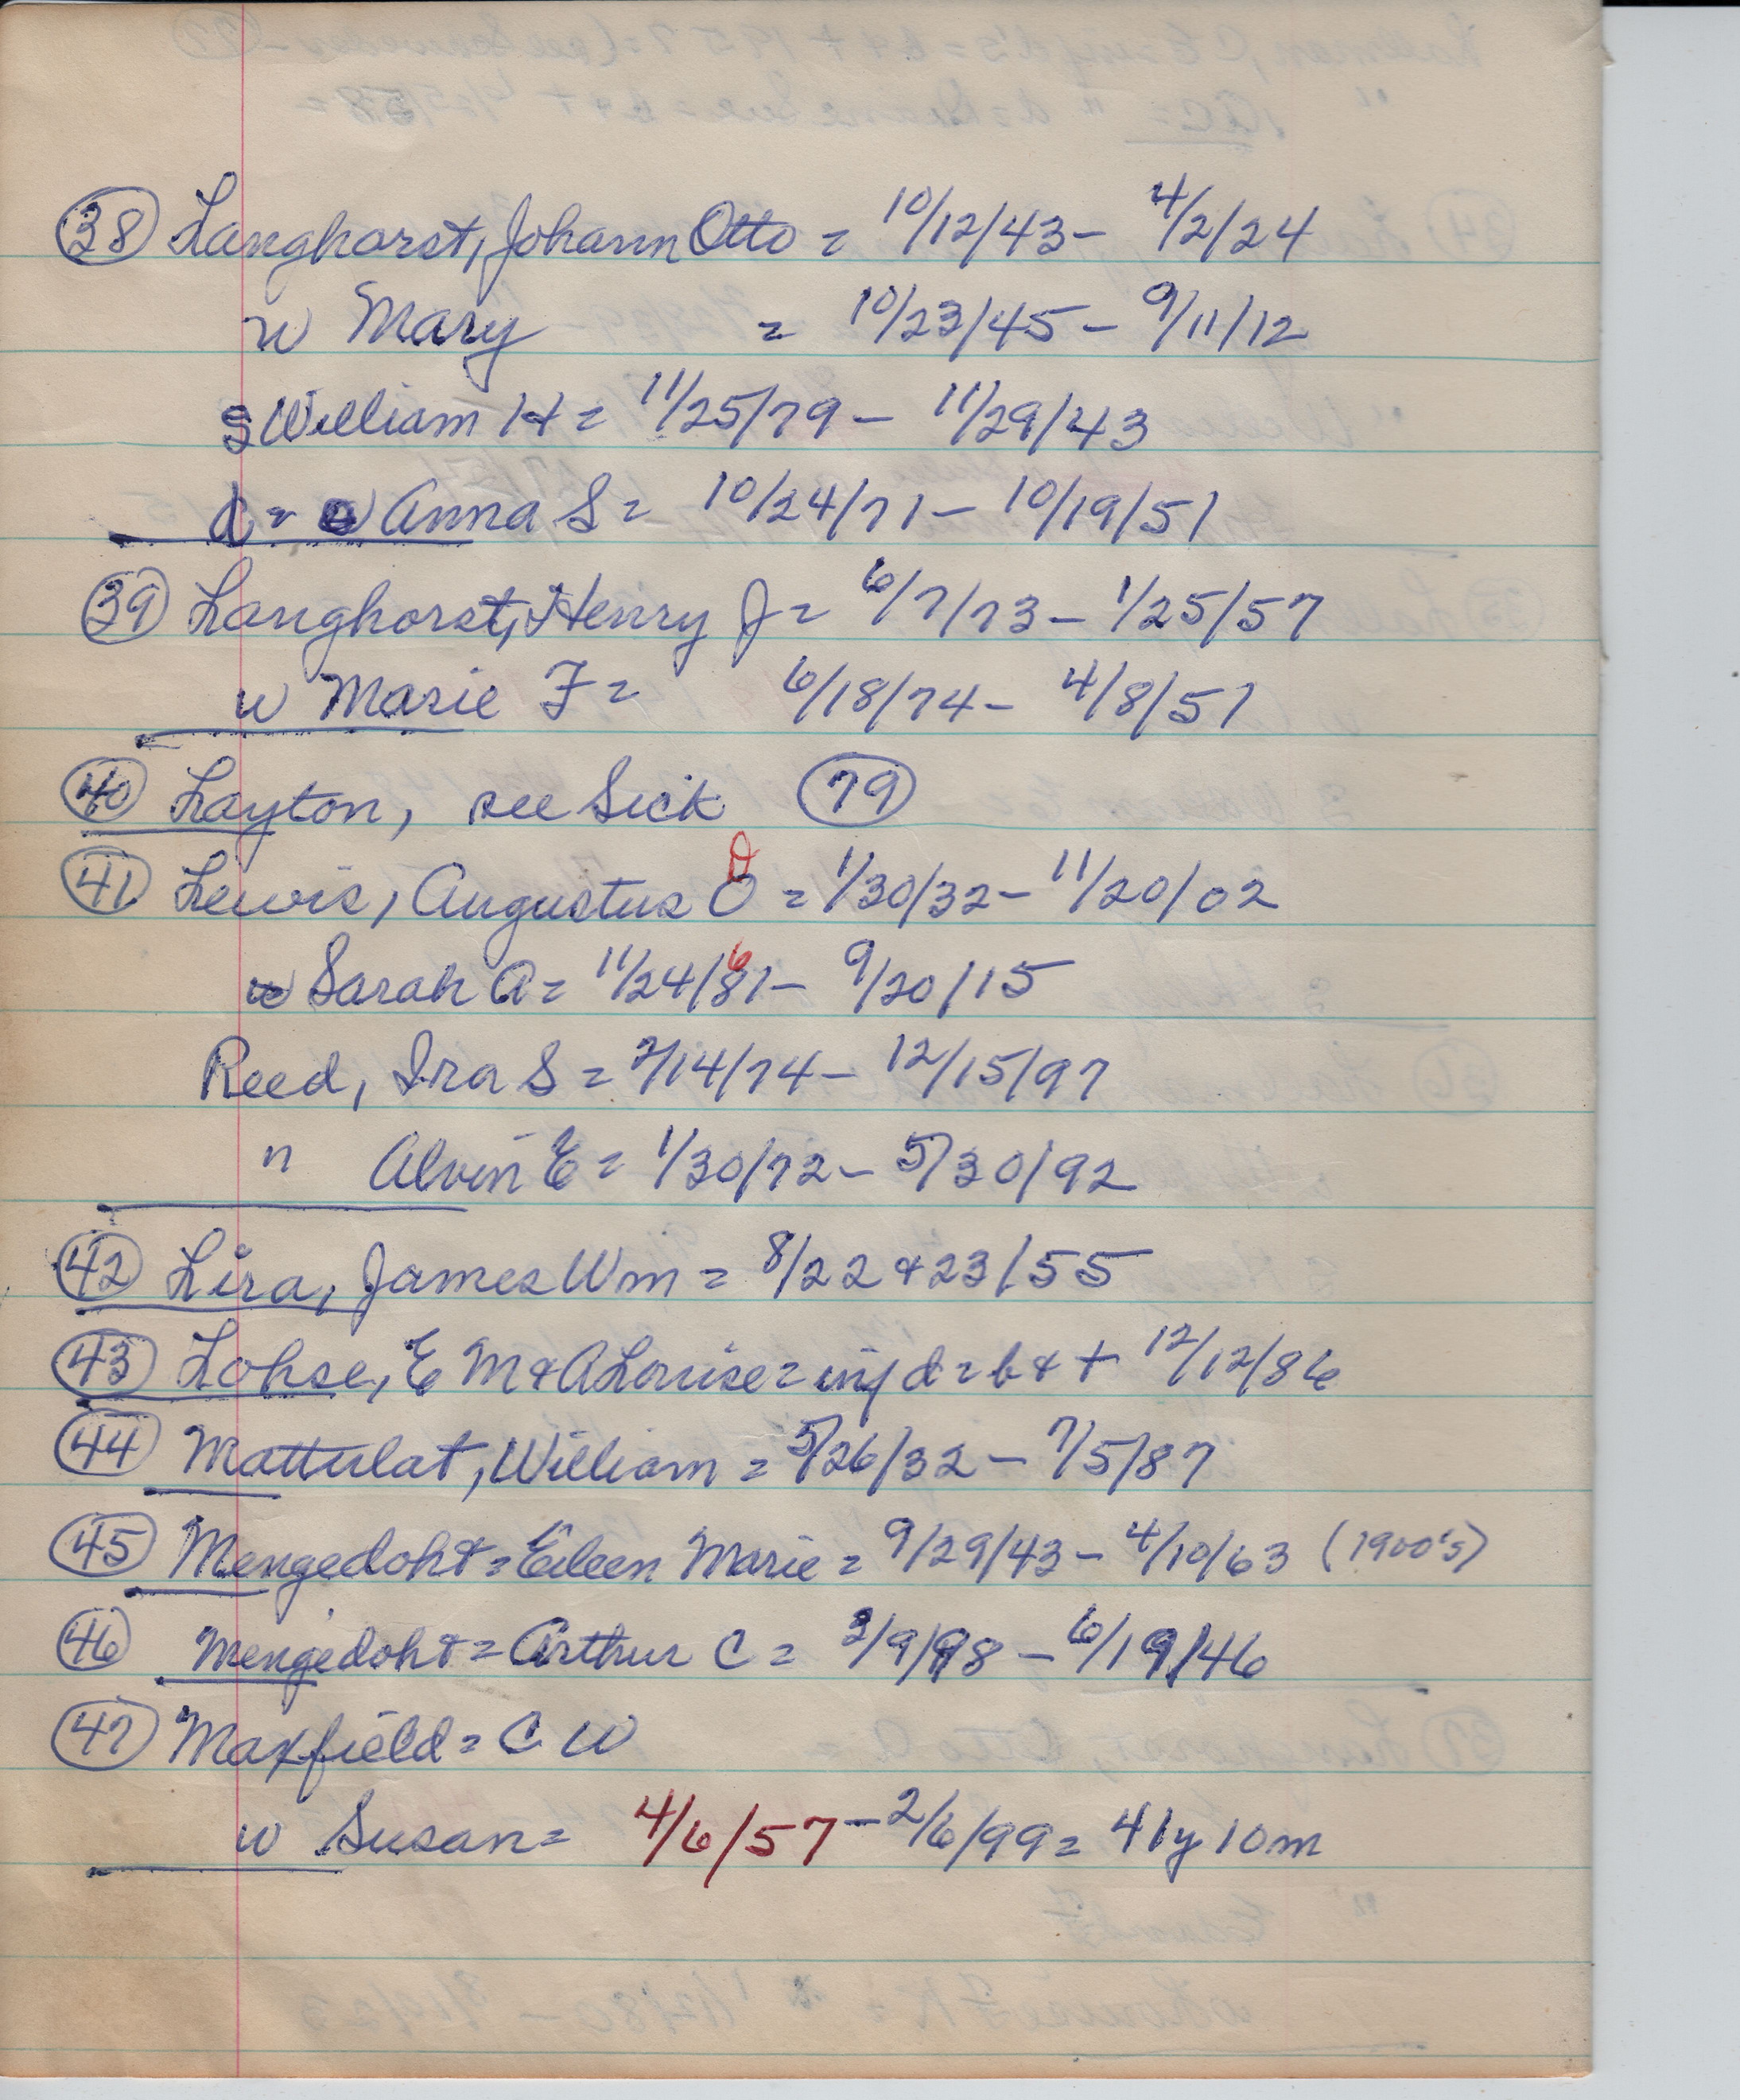 (38) Langhorst, Johann Otto = 10/12/43 - 4/2/24
w Mary = 10/23/45 - 9/11/12
s William H = 11/25/79 - 11/29/43
d = Anna S = 10/24/71 - 10/19/51
(39) Langhorst, Henry J = 6/7/73 - 1/25/57
w Marie F = 6/18/74 - 4/8/51
(40) Layton, see Sick (79)
(41) Lewis, Augustus O = 1/30/32 - 11/20/02
w Sarah A = 11/24/81 - 9/20/15
Reed, Ira S = 7/14/74 - 12/15/97
" Alvin E = 1/30/72 - 5/30/92
(42) Lira, James Wm = 8/22 & 23/55
(43) Lohse, E M & A Louise = inf d = b & + 12/12/86
(44) Mattulat, William = 5/26/32 - 7/5/87
(45) Mengedoht = Eileen Marie = 9/29/43 - 4/10/63 (1900's)
(46) Mengedoht = Arthur C = 3/9/98 - 6/19/46
(47) Maxfield = C W
w Susan = 4/6/57 - 2/6/99 = 41y 10m